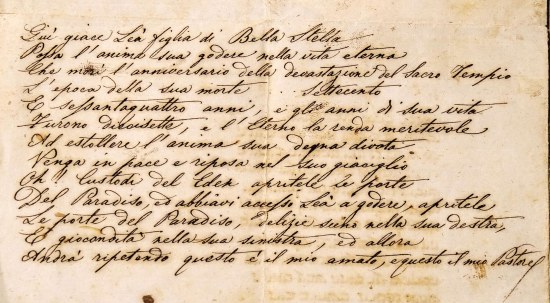 Qui giace Leà figlia di Bella Stella
Possa l'anima sua godere nella vita eterna
Che morì l'anniversario della devastazione del Sacro Tempio
L'epoca della sua morte . . Settecento
E sessantaquattro anni, e gli anni di sua vita
Furono diecisette, e l'Eterno la renda meritevole
Ad estollere l'anima sua degna divota
Venga in pace e riposa nel suo giaciglio
O l' Custodi del Eden apritele le porte
Del Paradiso, ed abbiavi accesso Leà a godere, apritele
Le porte del Paradiso, Edelizie sieno nella sua destra,
E giocondità nella sua sinistra, ed allora
Andrà ripetendo questo è il mio amato, equesto il mio Pastore